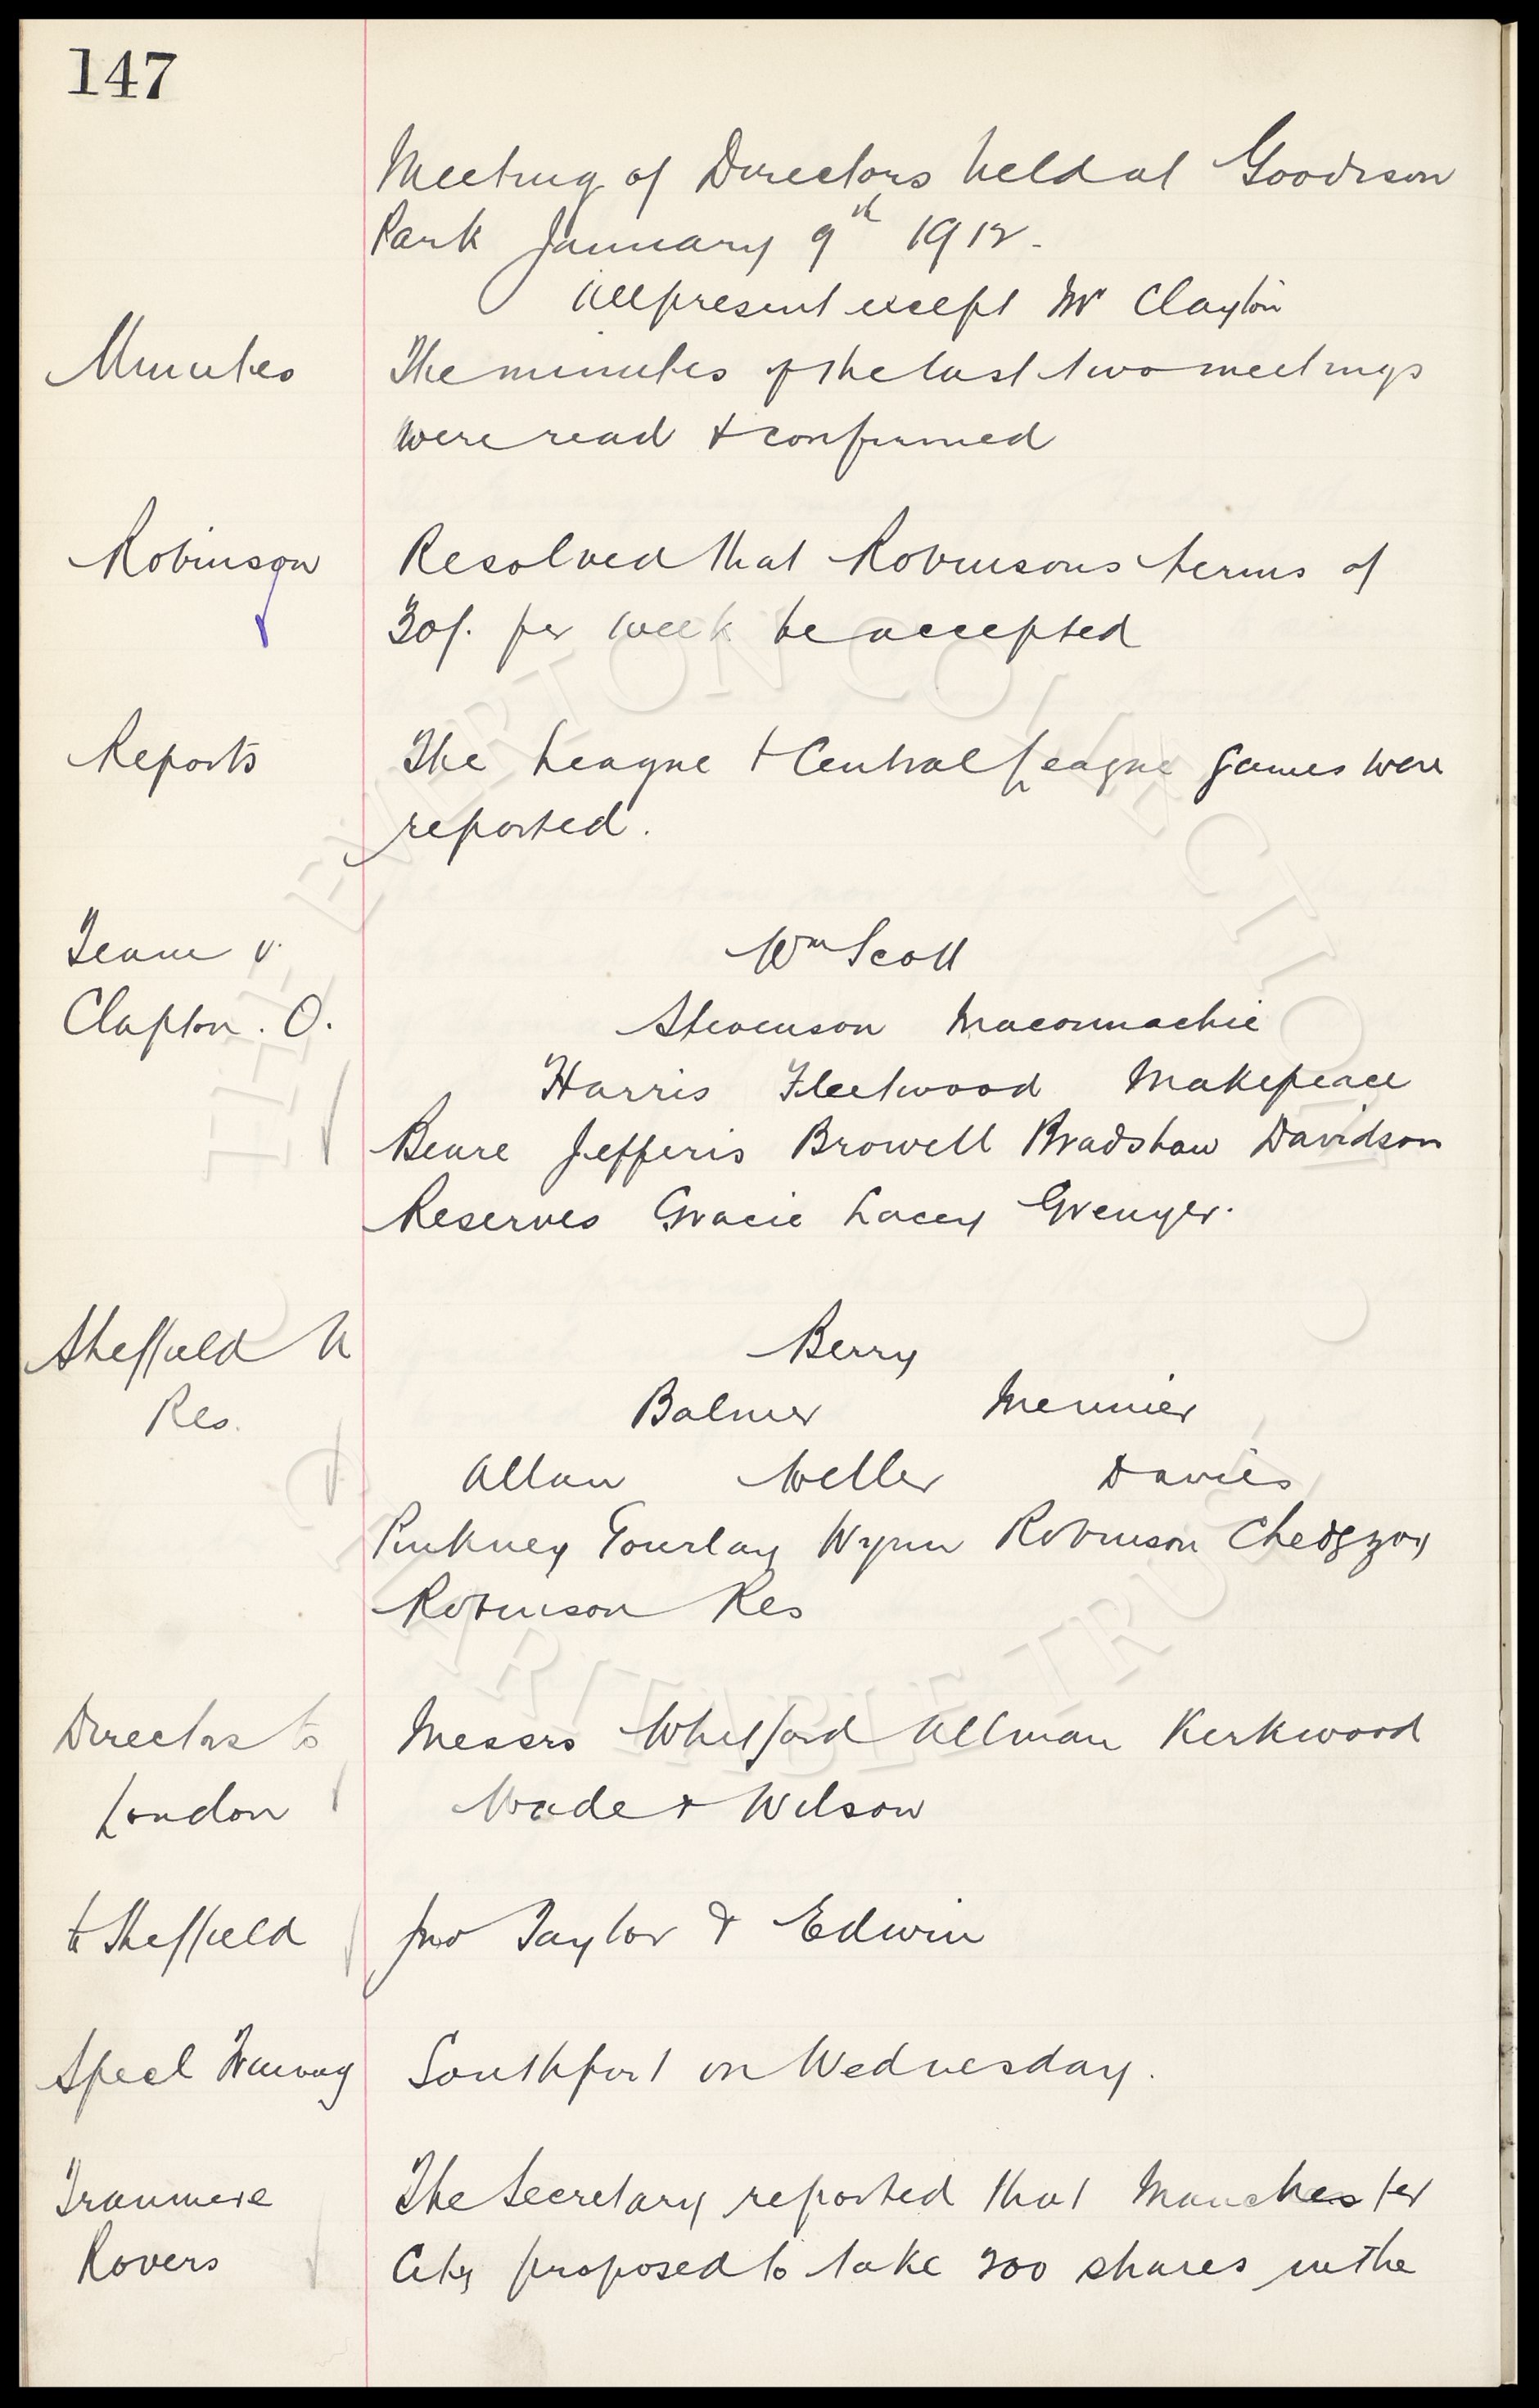 147
Meeting of Directors held at Goodison
Park January 9th 1912.
All present except Mr Clayton
Minutes
The minutes of the last two meetings
were read & confirmed
Robinson
Resolved that Robinsons terms of
30/. per week be accepted
Reports
The League & Central League games were
reported.
Team v.
Clapton. O.
Wm Scott
Stevenson Maconnachie
Harris Fleetwood Makepeace
Beare Jefferis Browell Bradshaw Davidson
Reserves Gracie Lacey Grenyer.
Sheffield U
Res.
Berry
Balmer Meunier
Allan Weller Davies
Pinkney Gourlay Wynn Robinson Chedgzoy
Robinson Res
Directors to
London
Messrs Whitford Allman Kirkwood
Wade & Wilson
to Sheffield
Jno Taylor & Edwin
Specl Training
Southport on Wednesday.
Tranmere
Rovers
The Secretary reported that Manchester
City proposed to take 200 shares in the
THE EVERTON COLLECTION
CHARITABLE TRUST